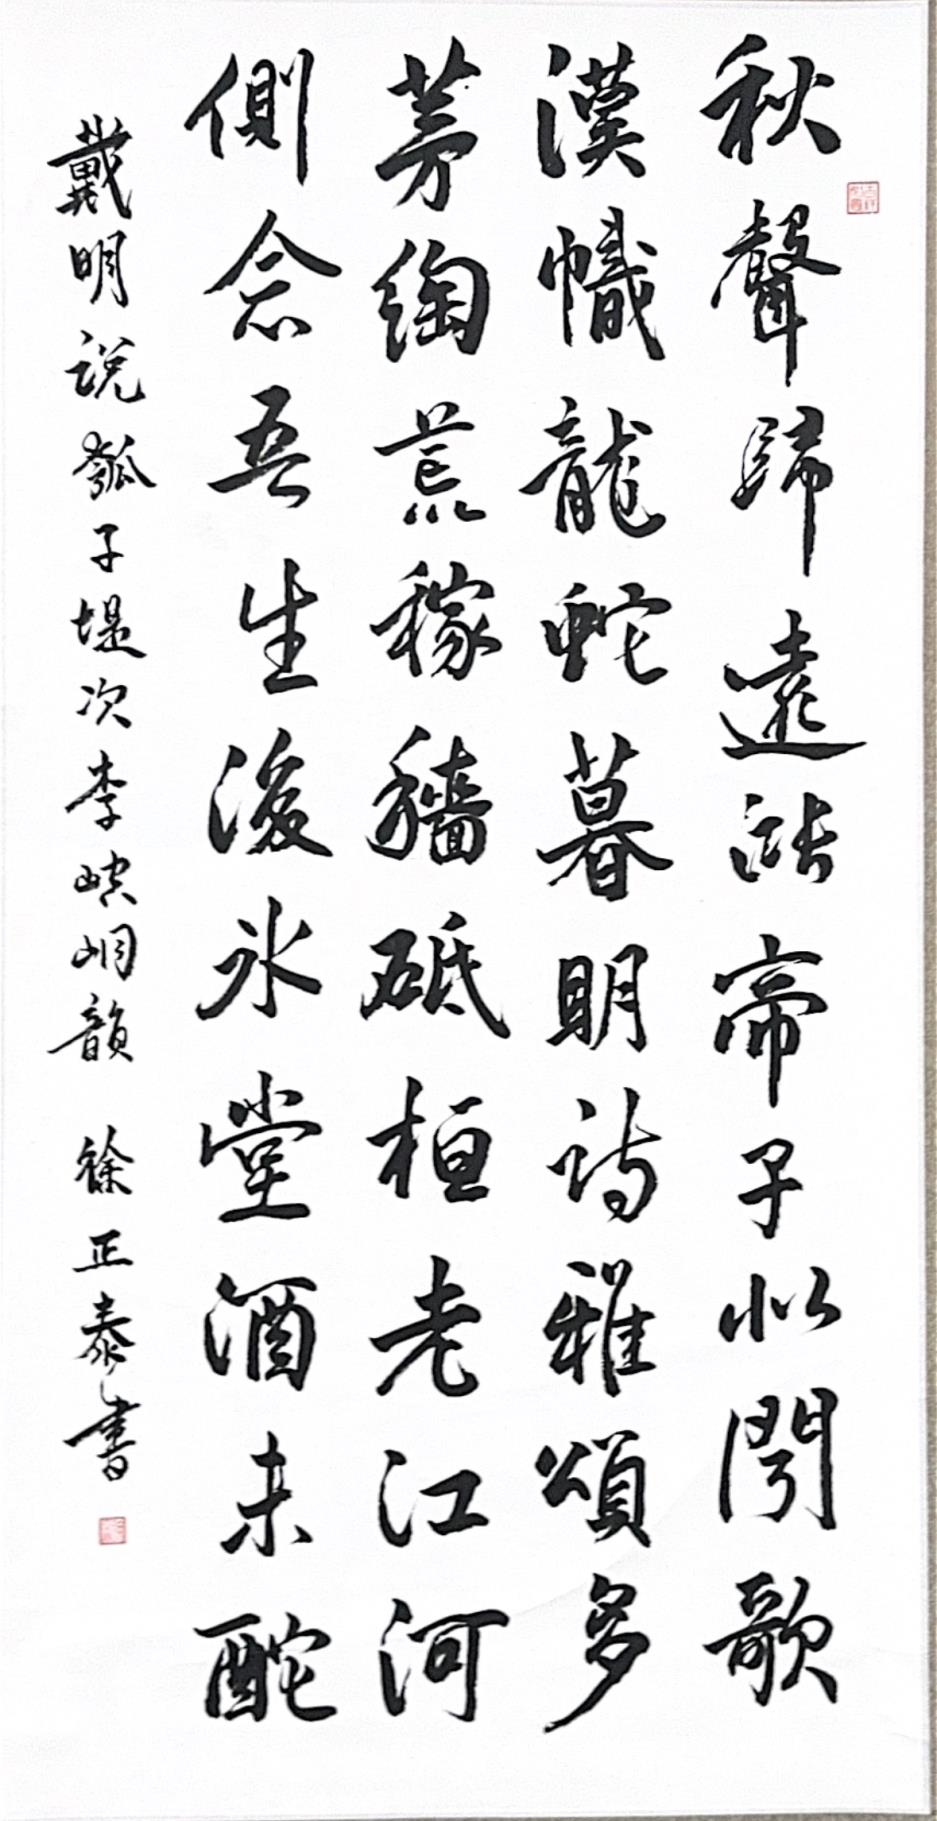 秋聲歸遠渚帝子似聞歌
漢幟龍蛇暮明詩雅頌多
茅綯荒稼穡砥桓老江河
側念吾生後氷堂酒未酡
戴明說瓠子堤次李崆峒韻 徐正泰書